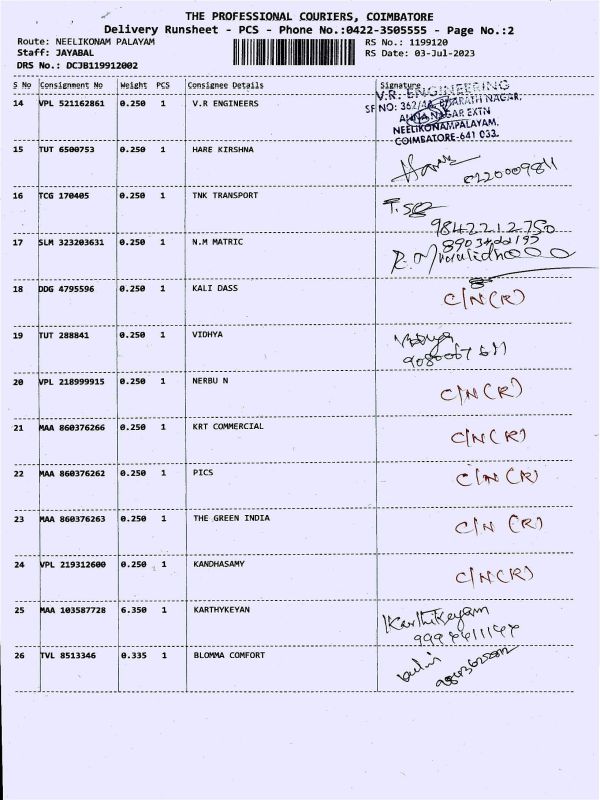 THE PROFESSIONAL COURIERS, COIMBATORE
Delivery Runsheet - PCS - Phone No.:0422-3505555 - Page No.:2
Route: NEELIKONAM PALAYAM RS No.: 1199120
Staff: JAYABAL RS Date: 03-Jul-2023
DRS No.: DCJB119912002
S No Consignment No Weight PCS Consignee Details Signature
14 VPL 521162861 0.250 1 V.R ENGINEERS
V.R. ENGINEERING
SF NO: 362/4A, BHARATH NAGAR,
ANNA NAGAR EXTN
NEELIKONAMPALAYAM,
COIMBATORE-641 033.
15 TUT 6500753 0.250 1 HARE KIRSHNA
0220009811
16 TCG 170405 0.250 1 TNK TRANSPORT
9842212750
17 SLM 323203631 0.250 1 N.M MATRIC
18 DDG 4795596 0.250 1 KALI DASS C/N(R)
19 TUT 288841 0.250 1 VIDHYA
20 VPL 218999915 0.250 1 NERBU N C/N(R)
21 MAA 860376266 0.250 1 KRT COMMERCIAL C/N(R)
22 MAA 860376262 0.250 1 PICS C/N(R)
23 MAA 860376263 0.250 1 THE GREEN INDIA C/N (R)
24 VPL 219312600 0.250 1 KANDHASAMY C/N(R)
25 MAA 103587728 6.350 1 KARTHYKEYAN Karthikeyam
26 TVL 8513346 0.335 1 BLOMMA COMFORT